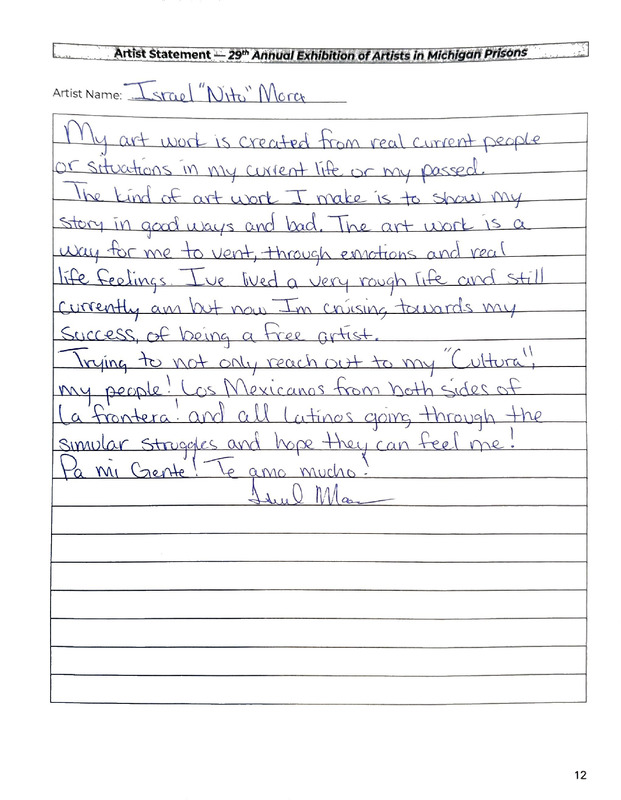 Artist Statement — 29th Annual Exhibition of Artists in Michigan Prisons
Artist Name: Israel "Nito" Mora
My art work is created from real current people
or situations in my current life or my passed.
The kind of art work I make is to show my
story in good ways and bad. The art work is a
way for me to vent, through emotions and real
life feelings. I've lived a very rough life and still
currently am but now I'm cruising towards my
success, of being a free artist.
Trying to not only reach out to my "Cultura",
my people! Los Mexicanos from both sides of
la frontera! and all Latinos going through the
simular struggles and hope they can feel me!
Pa mi Gente! Te amo mucho!
12